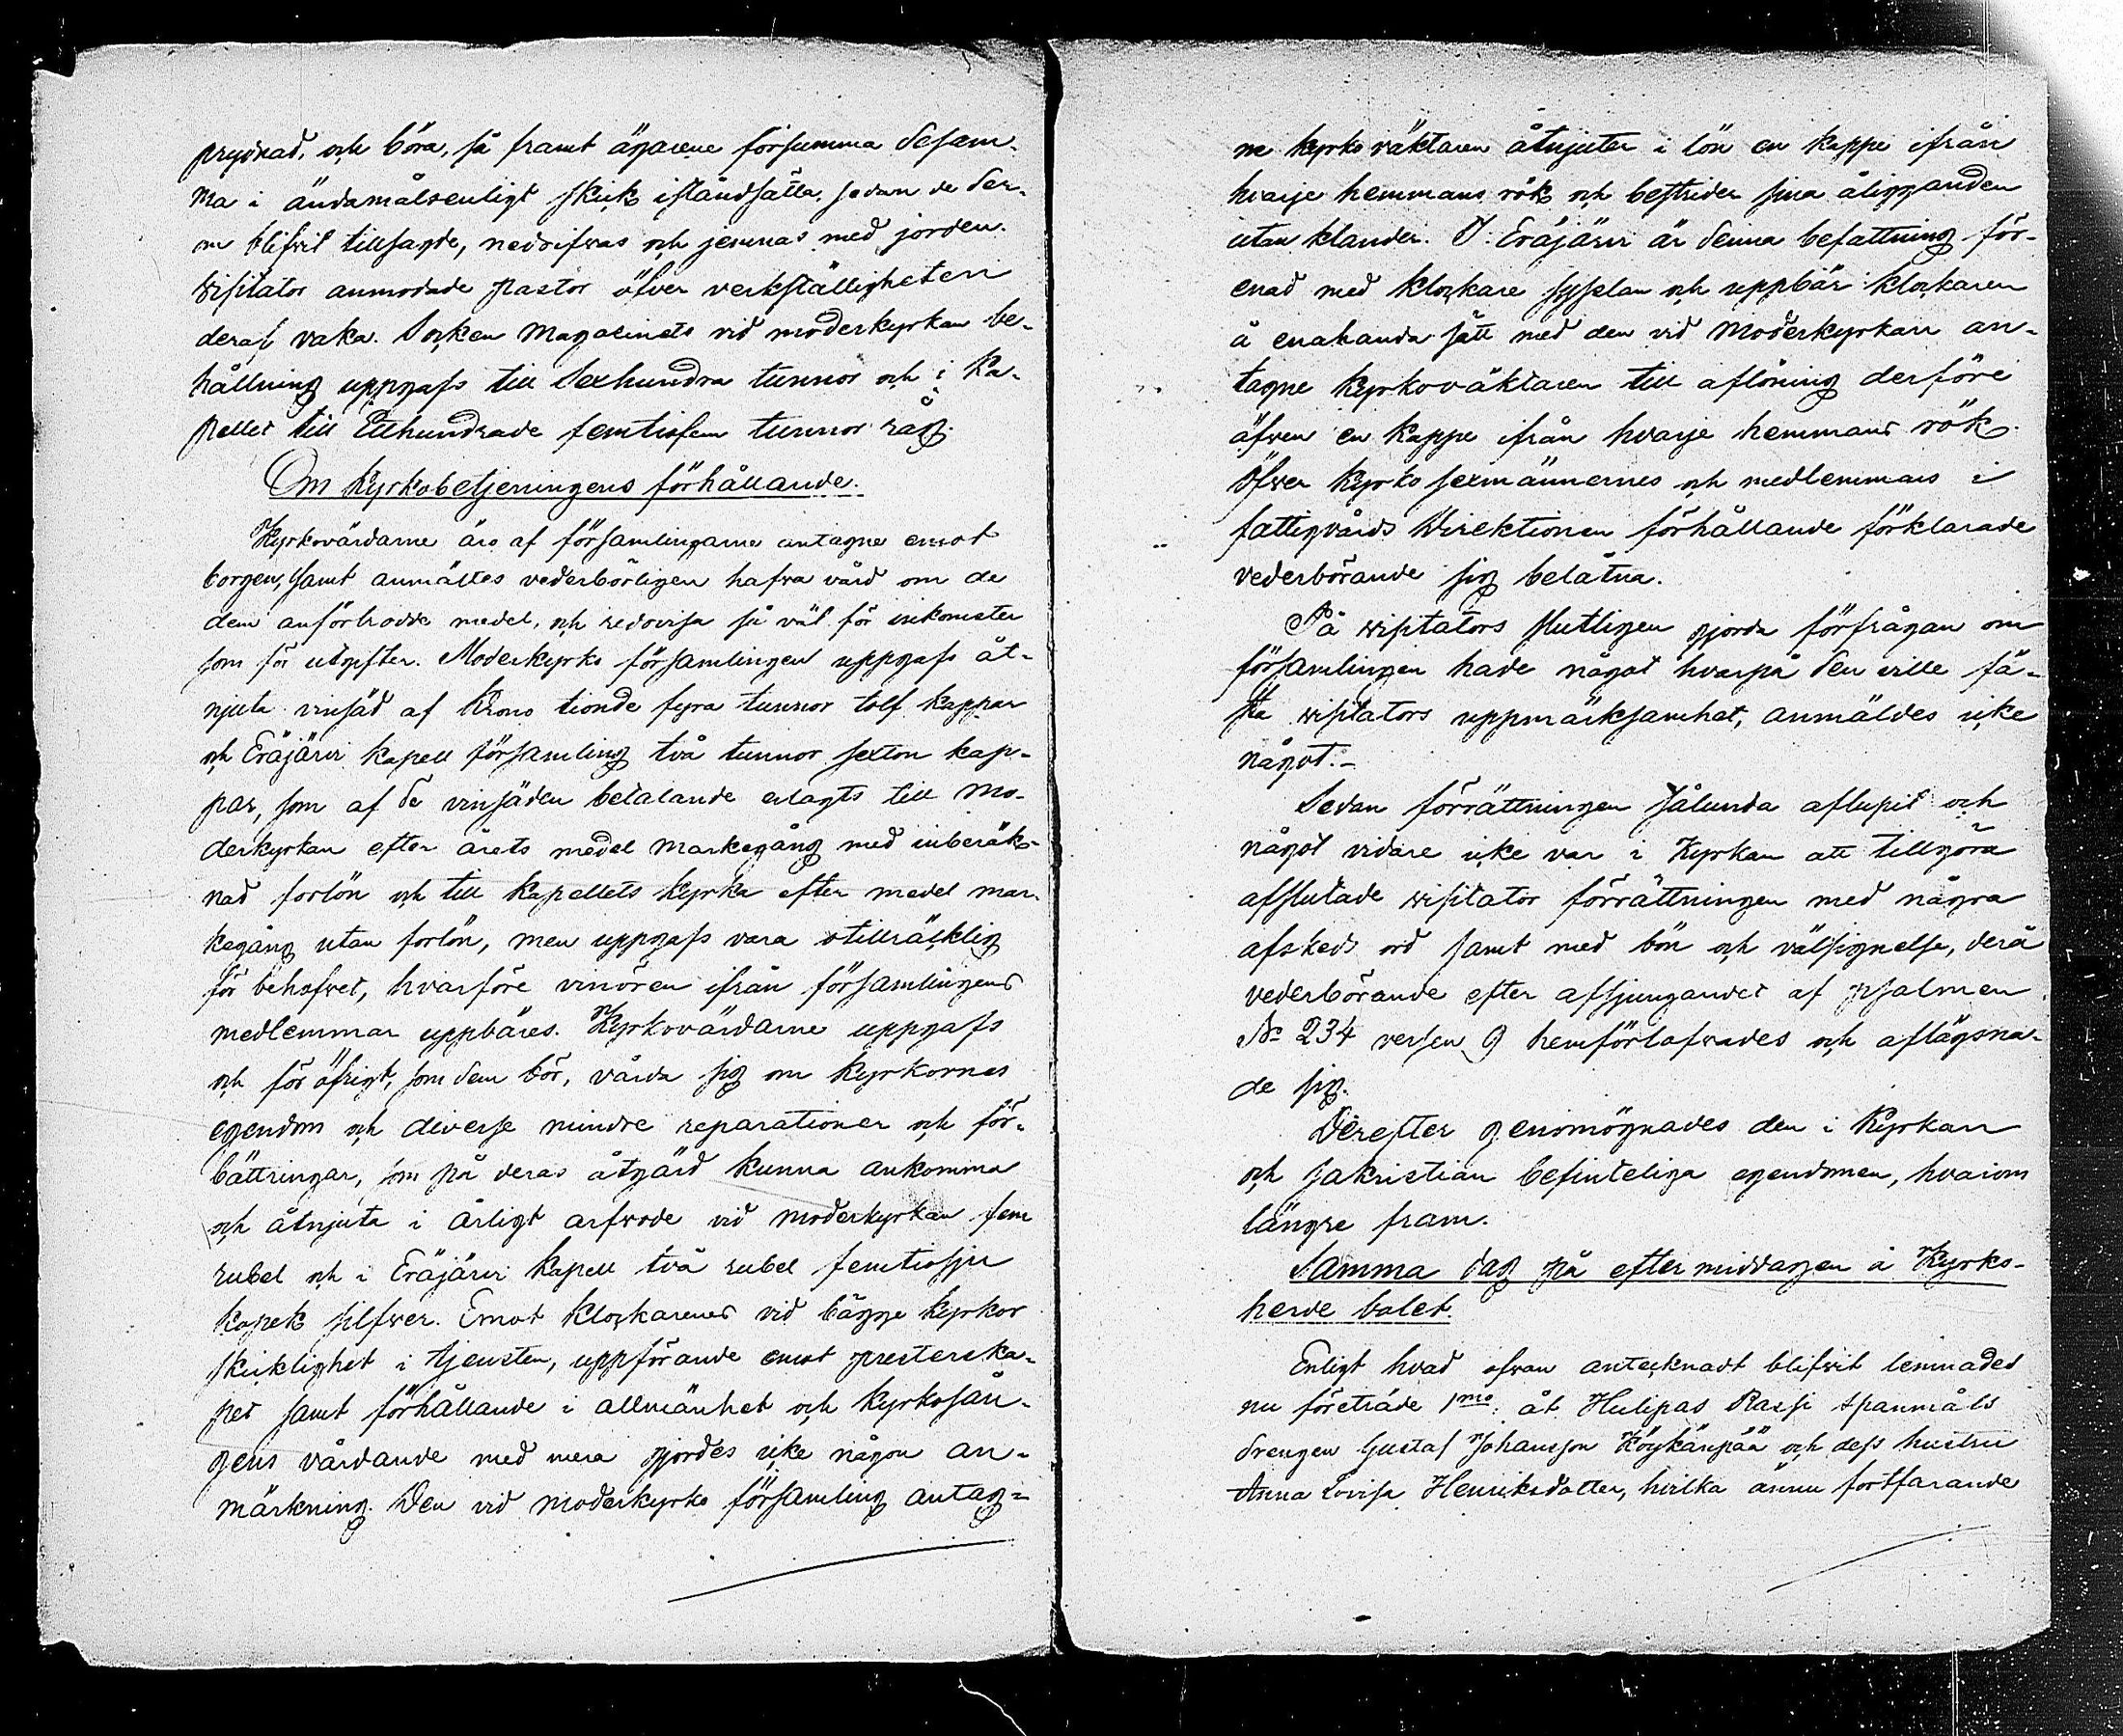 prydnad, och böra, så framt ägarene försumma desam-
ma i ändamålsenligt skick iståndsätta, sedan de der-
om blifvit tillsagde, nedrifvas och jemnas med jorden.
Visitator anmodade Pastor öfver verkställigheten
deraf vaka. Socken Magasinets vid moderkyrkan be-
hållning uppgafs till Sexhundra tunnor och i Ka-
pellet till Etthundrade femtiofem tunnor råg.
Om Kyrkobetjeningens förhållande.
Kyrkovärdarne äro af församlingarne antagne emot
borgen, samt anmältes vederbörligen hafva vård om de
dem anförtrodde medel, och redovisa så väl för inkomster
som för utgifter. Moderkyrko församlingen uppgafs åt-
njuta vinsäd af Krono tionde fyra tunnor tolf kappar
och Eräjärvi kapell församling två tunnor sexton kap-
par, som af de vinsäden betalande erlagts till Mo-
derkyrkan efter årets medel markegång med inberäk-
nad forlön och till Kapellets Kyrka efter medel mar-
kegång utan forlön, men uppgafs vara otillräcklig
för behofvet, hvarföre vinören ifrån församlingens
medlemmar uppbäres. Kyrkovärdarne uppgafs
och för öfrigt, som dem bör, vårda sig om Kyrkornas
egendom och diverse mindre reparationer och för-
bättringar, som på deras åtgärd kunna ankomma
och åtnjuta i årligt arfvode vid moderkyrkan fem
rubel och i Eräjärvi Kapell två rubel femtiosju
kopek silfver. Emot Klockarenes vid bägge kyrkor
skicklighet i tjensten, uppförande emot presterska-
pet samt förhållande i allmänhet och Kyrkosån-
gens vårdande med mera gjordes icke någon an-
märkning. Den vid moderkyrko församling antag-
ne kyrko väktaren åtnjuter i lön en kappe ifrån
hvarje hemmans rök och bestrider sina åligganden
utan klander. I Eräjärvi är denna befattning för-
enad med klockare sysslan och uppbär klockaren
å enahanda sätt med den vid Moderkyrkan an-
tagne Kyrkoväktaren till aflöning derföre
äfven en Kappe ifrån hvarje hemmans rök.
Öfver Kyrko sexmännernes och medlemmars i
fattigvårds Direktionen förhållande förklarade
vederbörande sig belåtna.
På visitators slutligen gjorda förfrågan om
församlingen hade något hvarpå den ville fä-
sta visitators uppmärksamhet, anmäldes icke
något.-
Sedan förrättningen sålunda aflupit och
något vidare icke var i Kyrkan att tillgöra
afslutade visitator förrättningen med några
afskeds ord samt med bön och välsignelse, derå
vederbörande efter afsjungandet af psalmen
No 234 versen 9 hemförlofvades och aflägsna-
de sig.
Derefter genomögnades den i Kyrkan
och sakristian befinteliga egendomen, hvarom
längre fram.
Samma dag på eftermiddagen å Kyrko-
herde bolet.
Enligt hvad ofvan antecknadt blifvit lemnades
nu företräde 1mo: åt Hulipas Rassi spanmåls
drengen Gustaf Johansson Köykänpää och dess hustru
Anna Lovisa Henriksdotter, hvilka ännu fortfarande